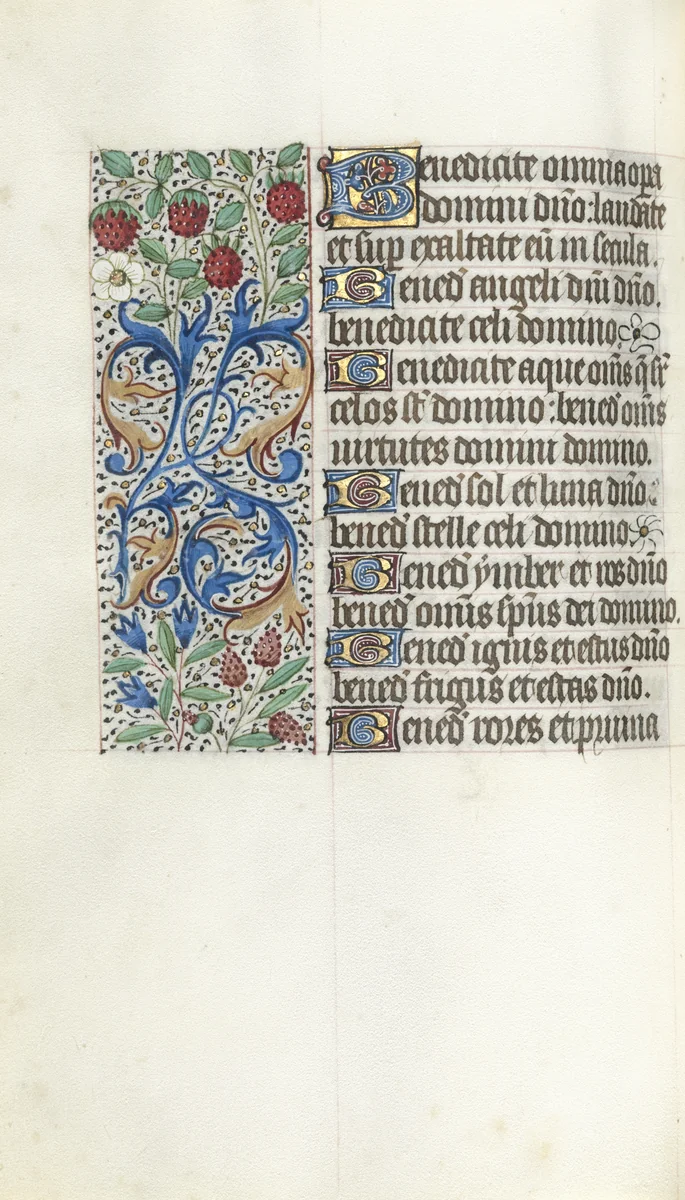 Benedicite omnia opa
domini dño: laudate
et sup exaltate eū in secula.
Bened̄ angeli dñi dño.
benedicite celi domino
Benedicite aque oīns q̄ sr̄
celos st̄ domino: bened̄ oīns
uirtutes domini domino.
Bened̄ sol et luna dño:
bened̄ stelle celi domino
Bened̄ ymber et ros dño
bened̄ omīs sp̄us dei domino.
Bened̄ ignis et estus dño
bened̄ frigus et estas dño.
Bened̄ rores et pruina